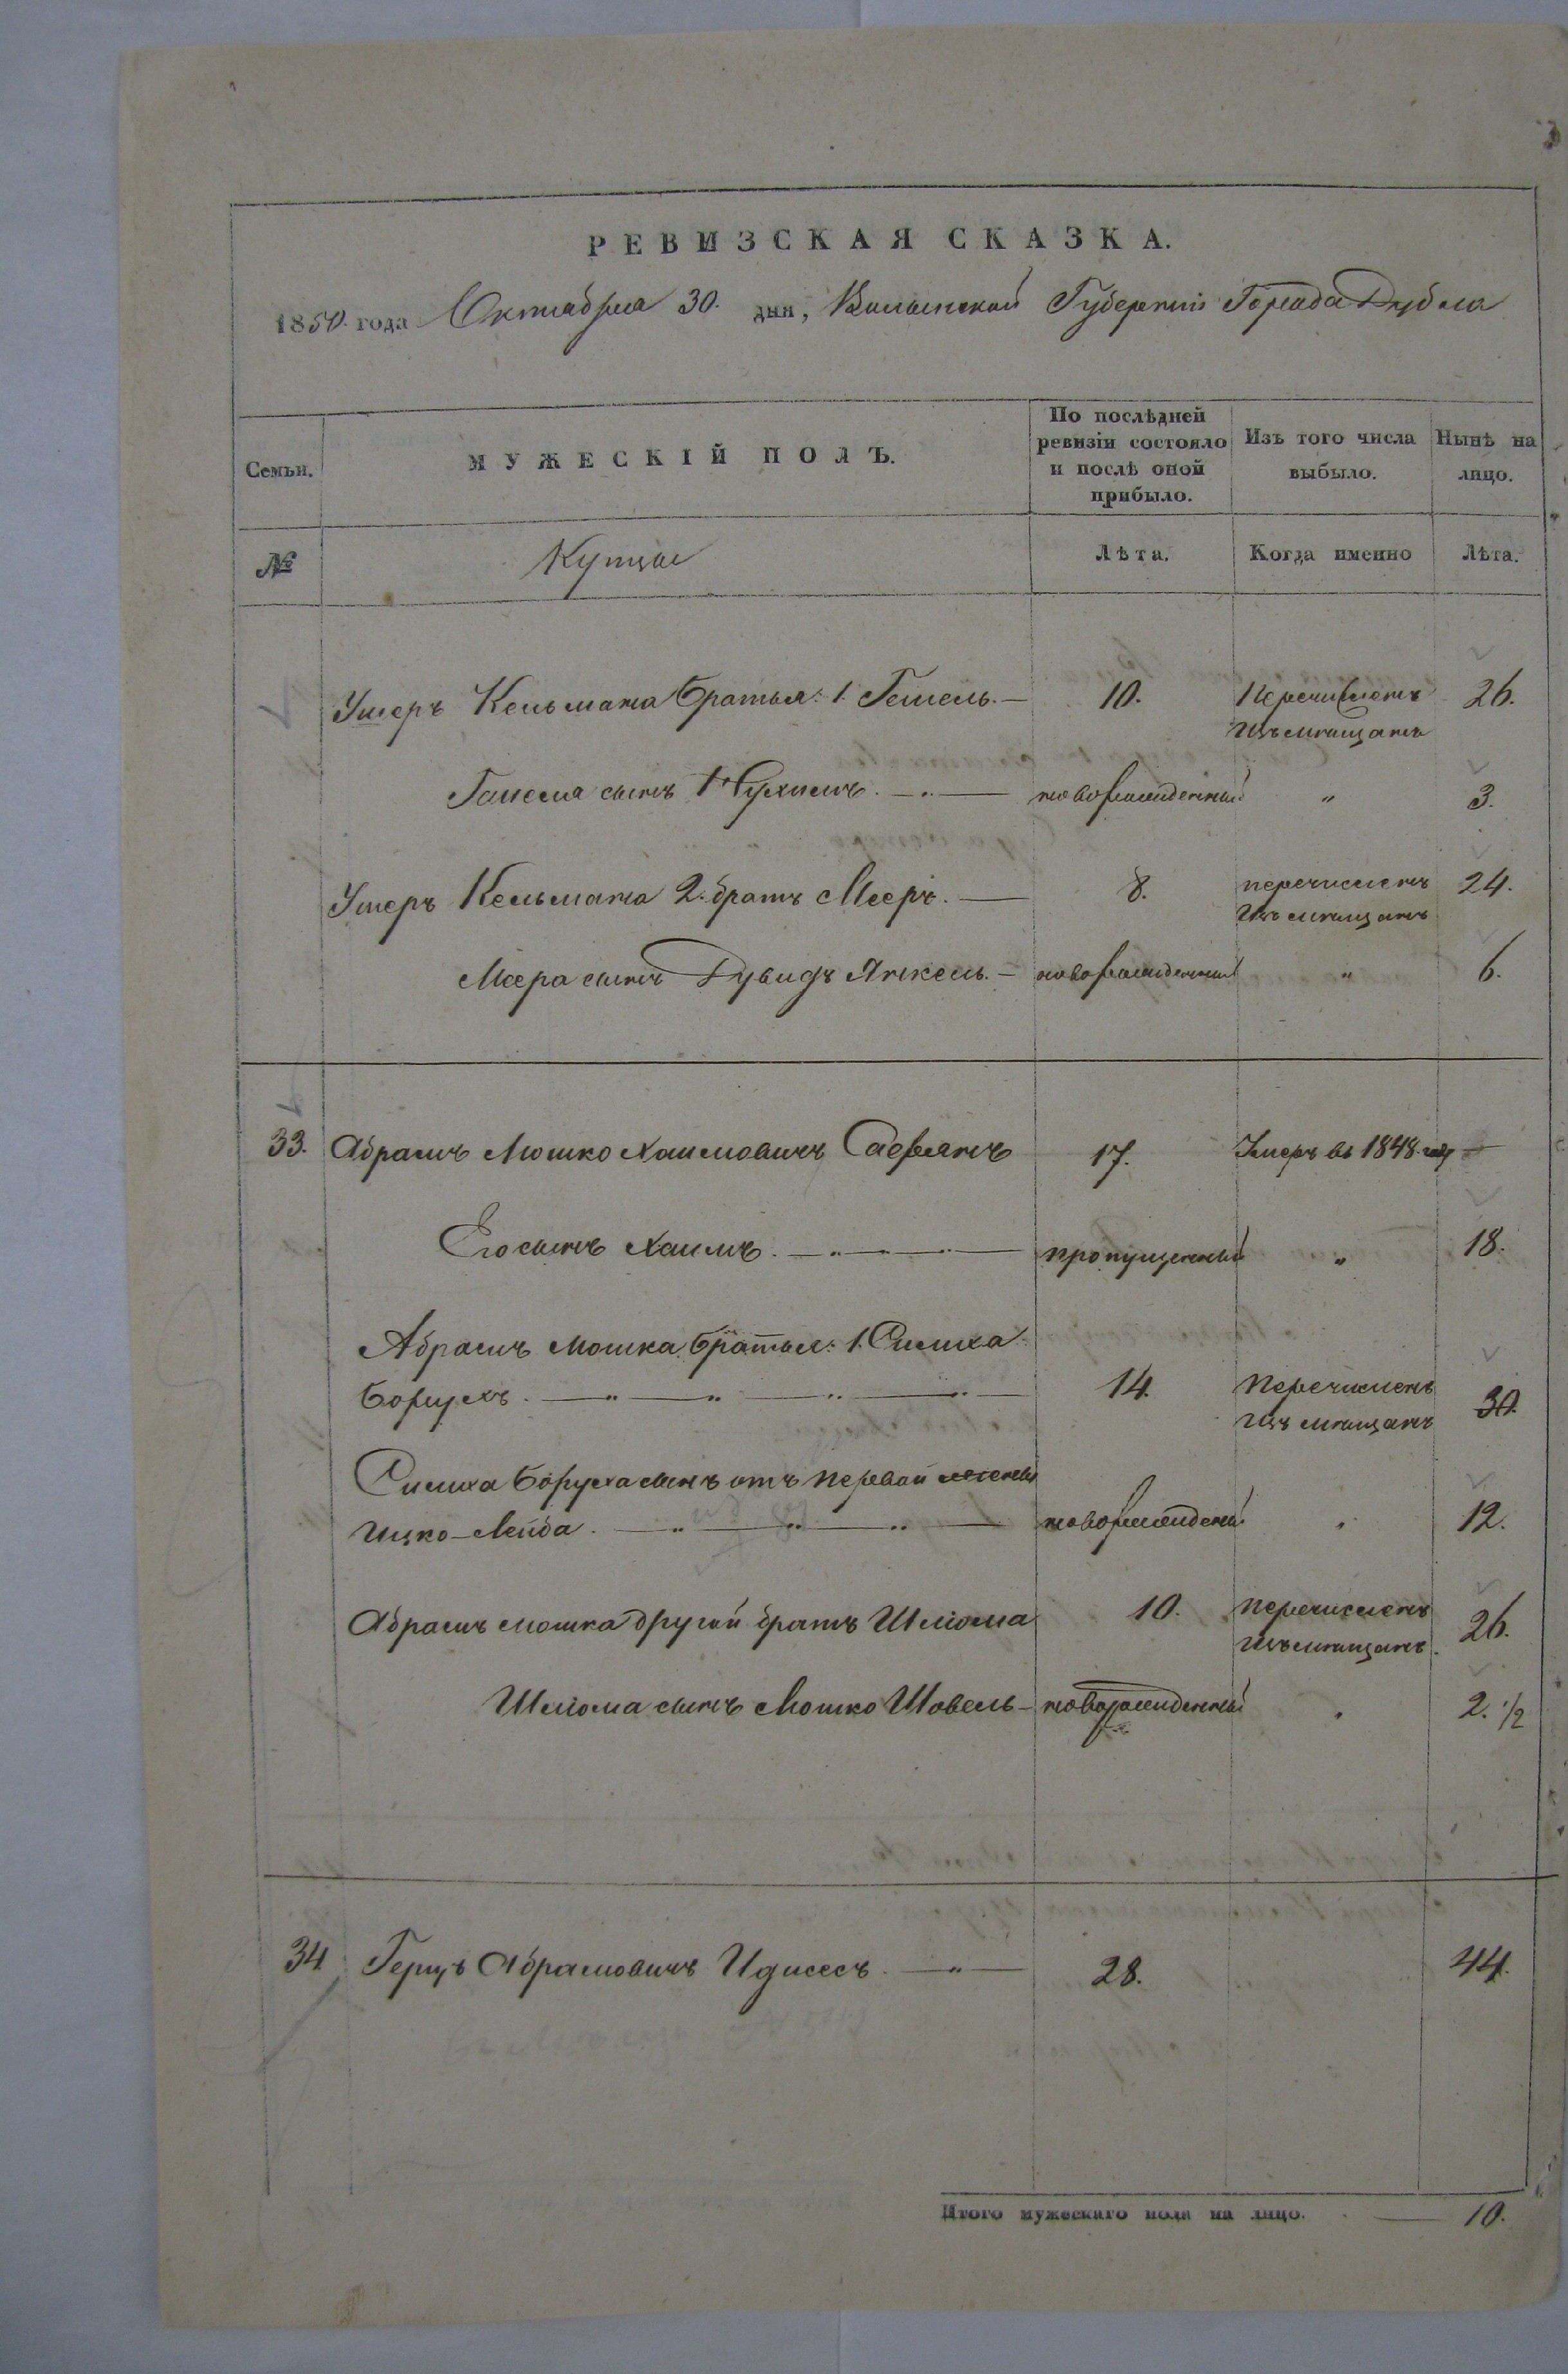 РЕВИЗСКАЯ СКАЗКА.
1850 года Октября 30. дня, Волынской Губерніи Города Дубна
Семьи.
МУЖЕСКІЙ ПОЛЪ.
По послѣдней ревизіи состояло и послѣ оной прибыло.
Изъ того числа выбыло.
Нынѣ на лицо.
№ Купцы Лѣта. Когда именно Лѣта.
Ушеръ Кельмана братья: 1. Гешель. — 10. Перечисленъ 26.
изъ мѣщанъ
Гешеля сынъ Нухимъ. — новорожденный " 3.
Ушеръ Кельмана 2. братъ Мееръ. — 8. перечисленъ 24.
изъ мѣщанъ
Меера сынъ Дувидъ Янкель. — новорожденный " 6.
33. Абрамъ Мошко Хаимовичъ 17. Умеръ въ 1848 году —
Его сынъ Хаимъ. — пропущенный " 18.
Абрамъ Мошка братья: 1. Симха
Борухъ. — 14. Перечисленъ 30.
изъ мѣщанъ
Симха Боруха сынъ отъ первой жены
Ицко-Лейба. — новорожденый " 12.
Абрамъ Мошка другой братъ Шлёма 10. перечисленъ 26.
изъ мѣщанъ.
Шлёма сынъ Мошко Шовель — новорожденный " 2. 1/2
34 Герцъ Абрамовичъ Идисесъ. — 28. 44.
Итого мужескаго пола на лицо. — 10.